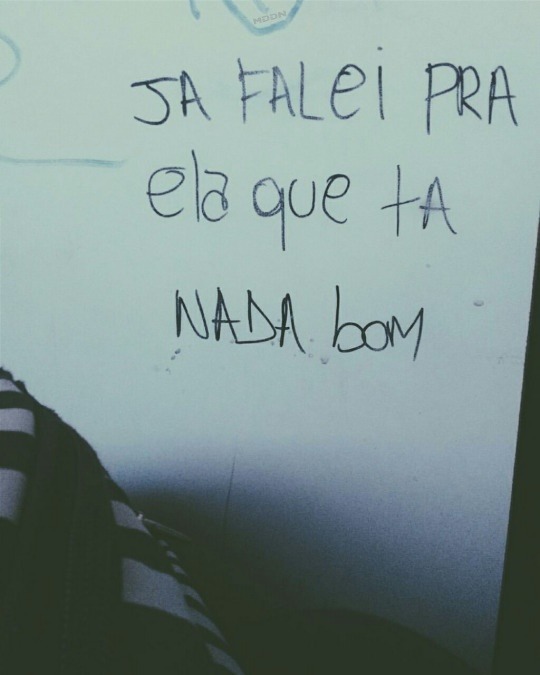 MOON
JA FALei PRA
ela que tA
NADA bom